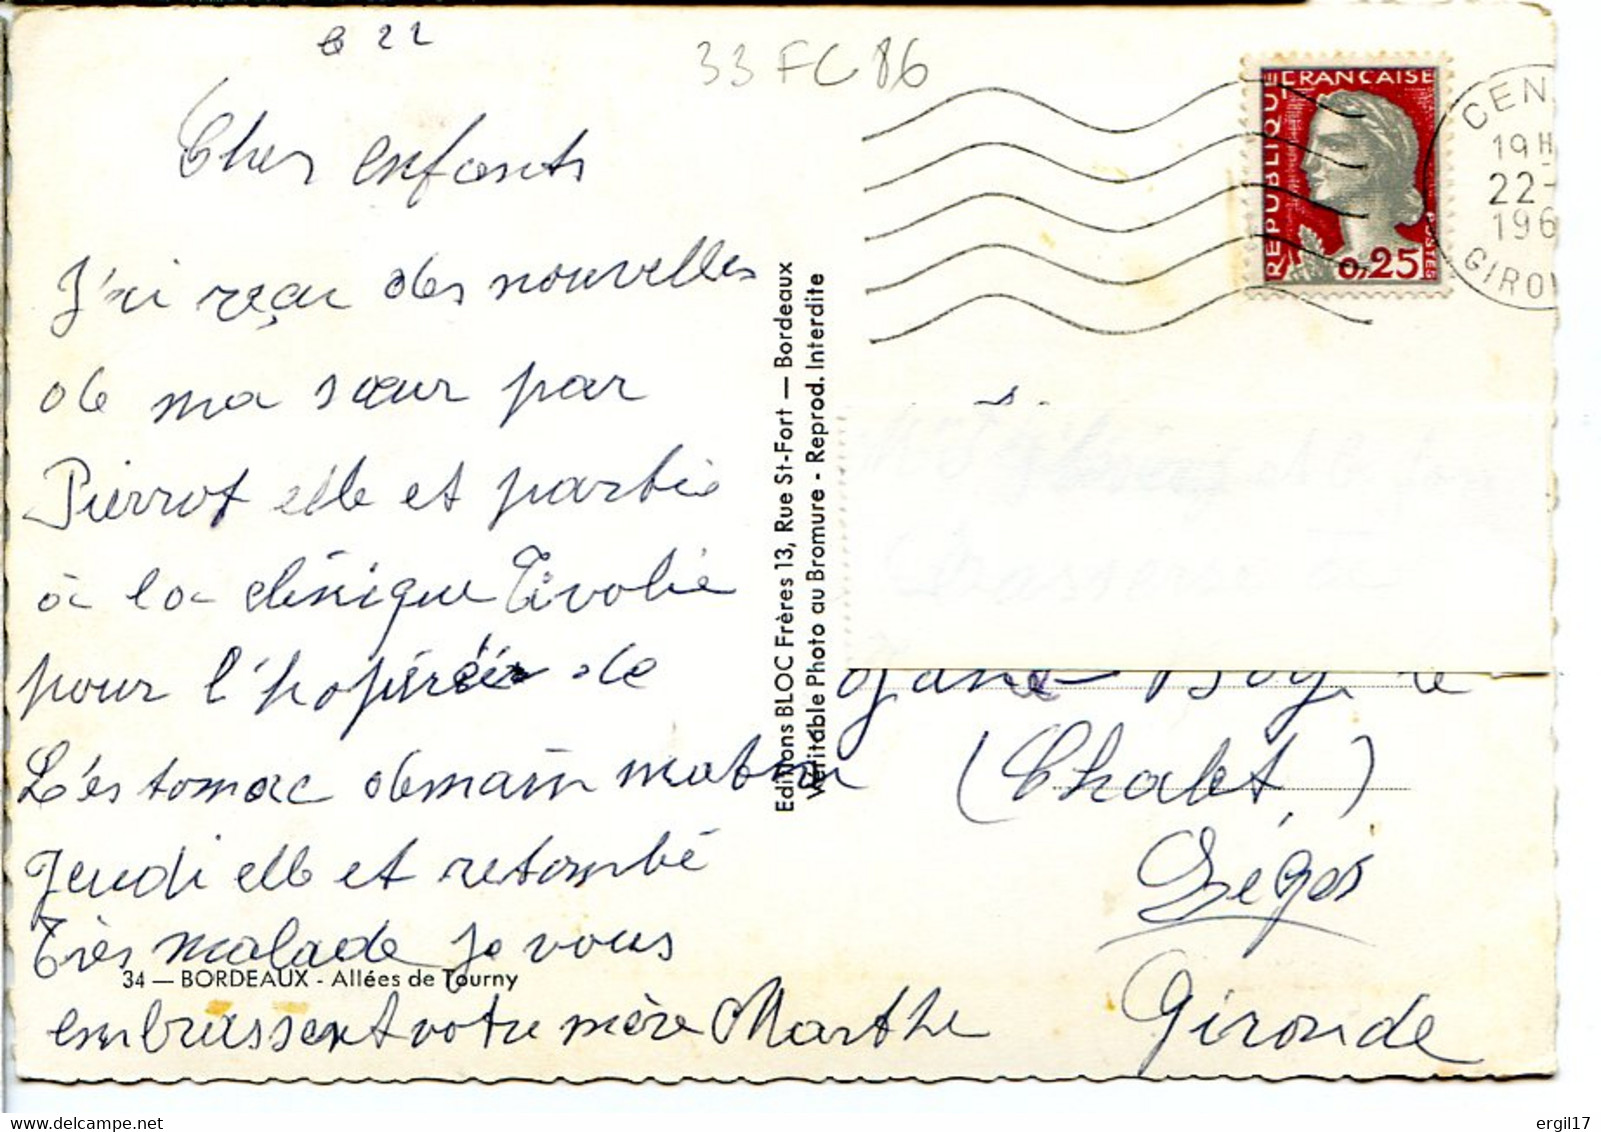 22
33 FC 86
Cher enfants
J'ai reçu des nouvelles
de ma sœur par
Pierrot elle et partie
à la clinique Tivolie
pour l' de
L'éstomac demain matin
Jeudi elle et retombé
très malade Je vous
embrassent votre mère Marthe
34 — BORDEAUX - Allées de Tourny
Editions BLOC Frères 13, Rue St-Fort — Bordeaux
Véritable Photo au Bromure - Reprod. Interdite
REPUBLIQUE FRANCAISE
0,25
POSTES
CEN
19H
22-
196
GIRON
Jane
(Chalet)
Gironde
ergil17